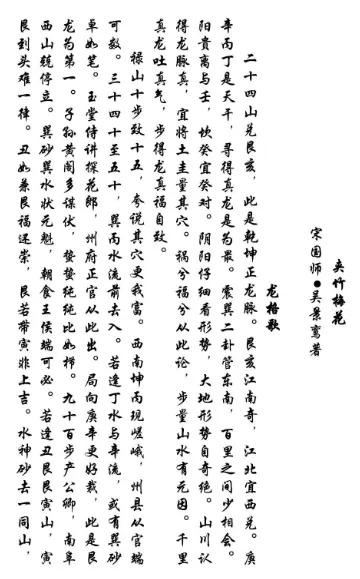 夹竹梅花
宋国师●吴景鸾著
龙格歌
二十四山兑艮亥，此是乾坤正龙脉。艮亥江南奇，江北宜西兑。庚
辛丙丁是天干，寻得真龙是为最。震巽二卦管东南，百里之间少相会。
阳贵离与壬，坎癸宜癸对。阴阳仔细看形势，大地形势自奇绝。山川认
得龙脉真，宜将土圭量其穴。祸兮福兮从此论，步量山水有元因。千里
真龙吐真气，步得龙真福自致。
禄山十步致十五，夸说其穴更我富。西南坤丙现嵯峨，州县从官端
可数。三十四十至五十，巽高水流前去入。若逢丁水与辛流，或有巽砂
卓如笔。玉堂侍讲探花郎，州府正官从此出。局向庚辛更好裁，此是艮
龙为第一。子孙黄阁多谋伏，蛰蛰绝绝比如栉。九十百步产公卿，南阜
西山競停立。巽砂巽水状元魁，朝食王侯端可必。若逢丑艮艮寅山，寅
艮到头难一律。丑如兼艮福还崇，艮若带寅非上吉。水神砂去一同山，